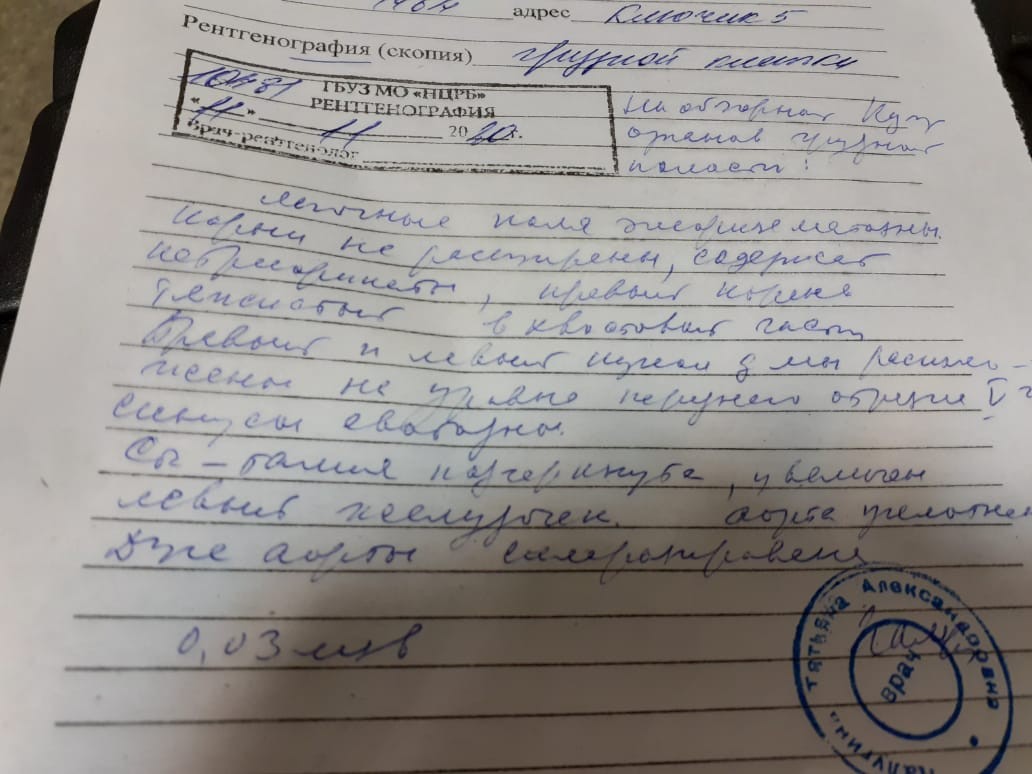 адрес Ключик 5
Рентгенография (скопия) грудной клетки
ГБУЗ МО «НЦРБ»
РЕНТГЕНОГРАФИЯ
« 11 » 11 2020г.
Врач-рентгенолог
На обзорной
органов грудной
полости:
легочные поля эмфизематозны.
Корни не расширены, содержат
петрификаты, правый корень
тяжистый в хвостовой части
Правый и левый купол д мы располо-
жены на уровне переднего отрезка V
синусы свободны.
талия подчеркнута, увеличен
левый желудочек. аорта уплотнен
Дуга аорты склерозирована
0,03 мзв
Татьяна Александровна
врач